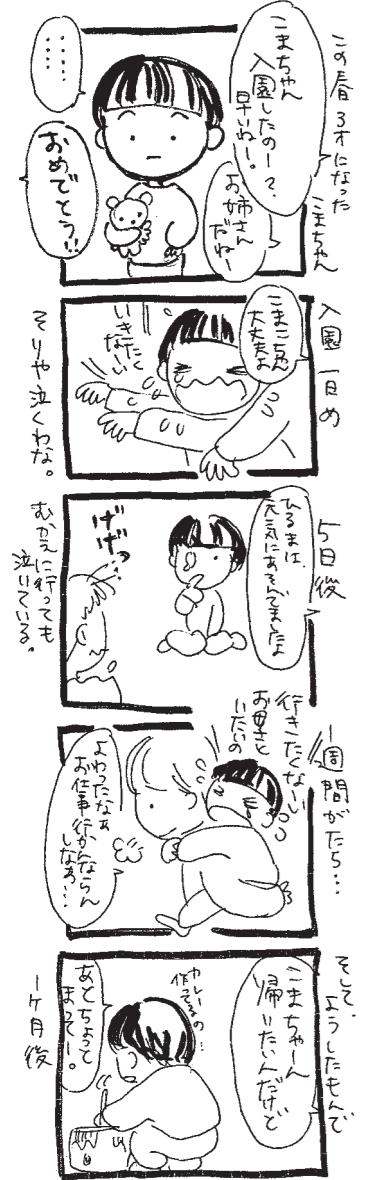 この春3才になった
こまちゃん
こまちゃん
入園したのー？
早いねー。
お姉さん
だねー
おめでとう!!
………
入園一日め
こまこちゃん
大丈夫よ
いきたく
ないー
そりゃ泣くわな。
5日後
ひるまは、
元気にあそんでましたよ
げげっ
むかえに行っても
泣いている。
一週間がたち…
行きたくない
お母さんと
いたいの
よわったなぁ
お仕事行かんならん
しなぁ…
そして、
ようしたもんで
こまちゃーん
帰いたいんだけど
カレー
作ってるの…
あとちょっと
まってー。
一ヶ月後